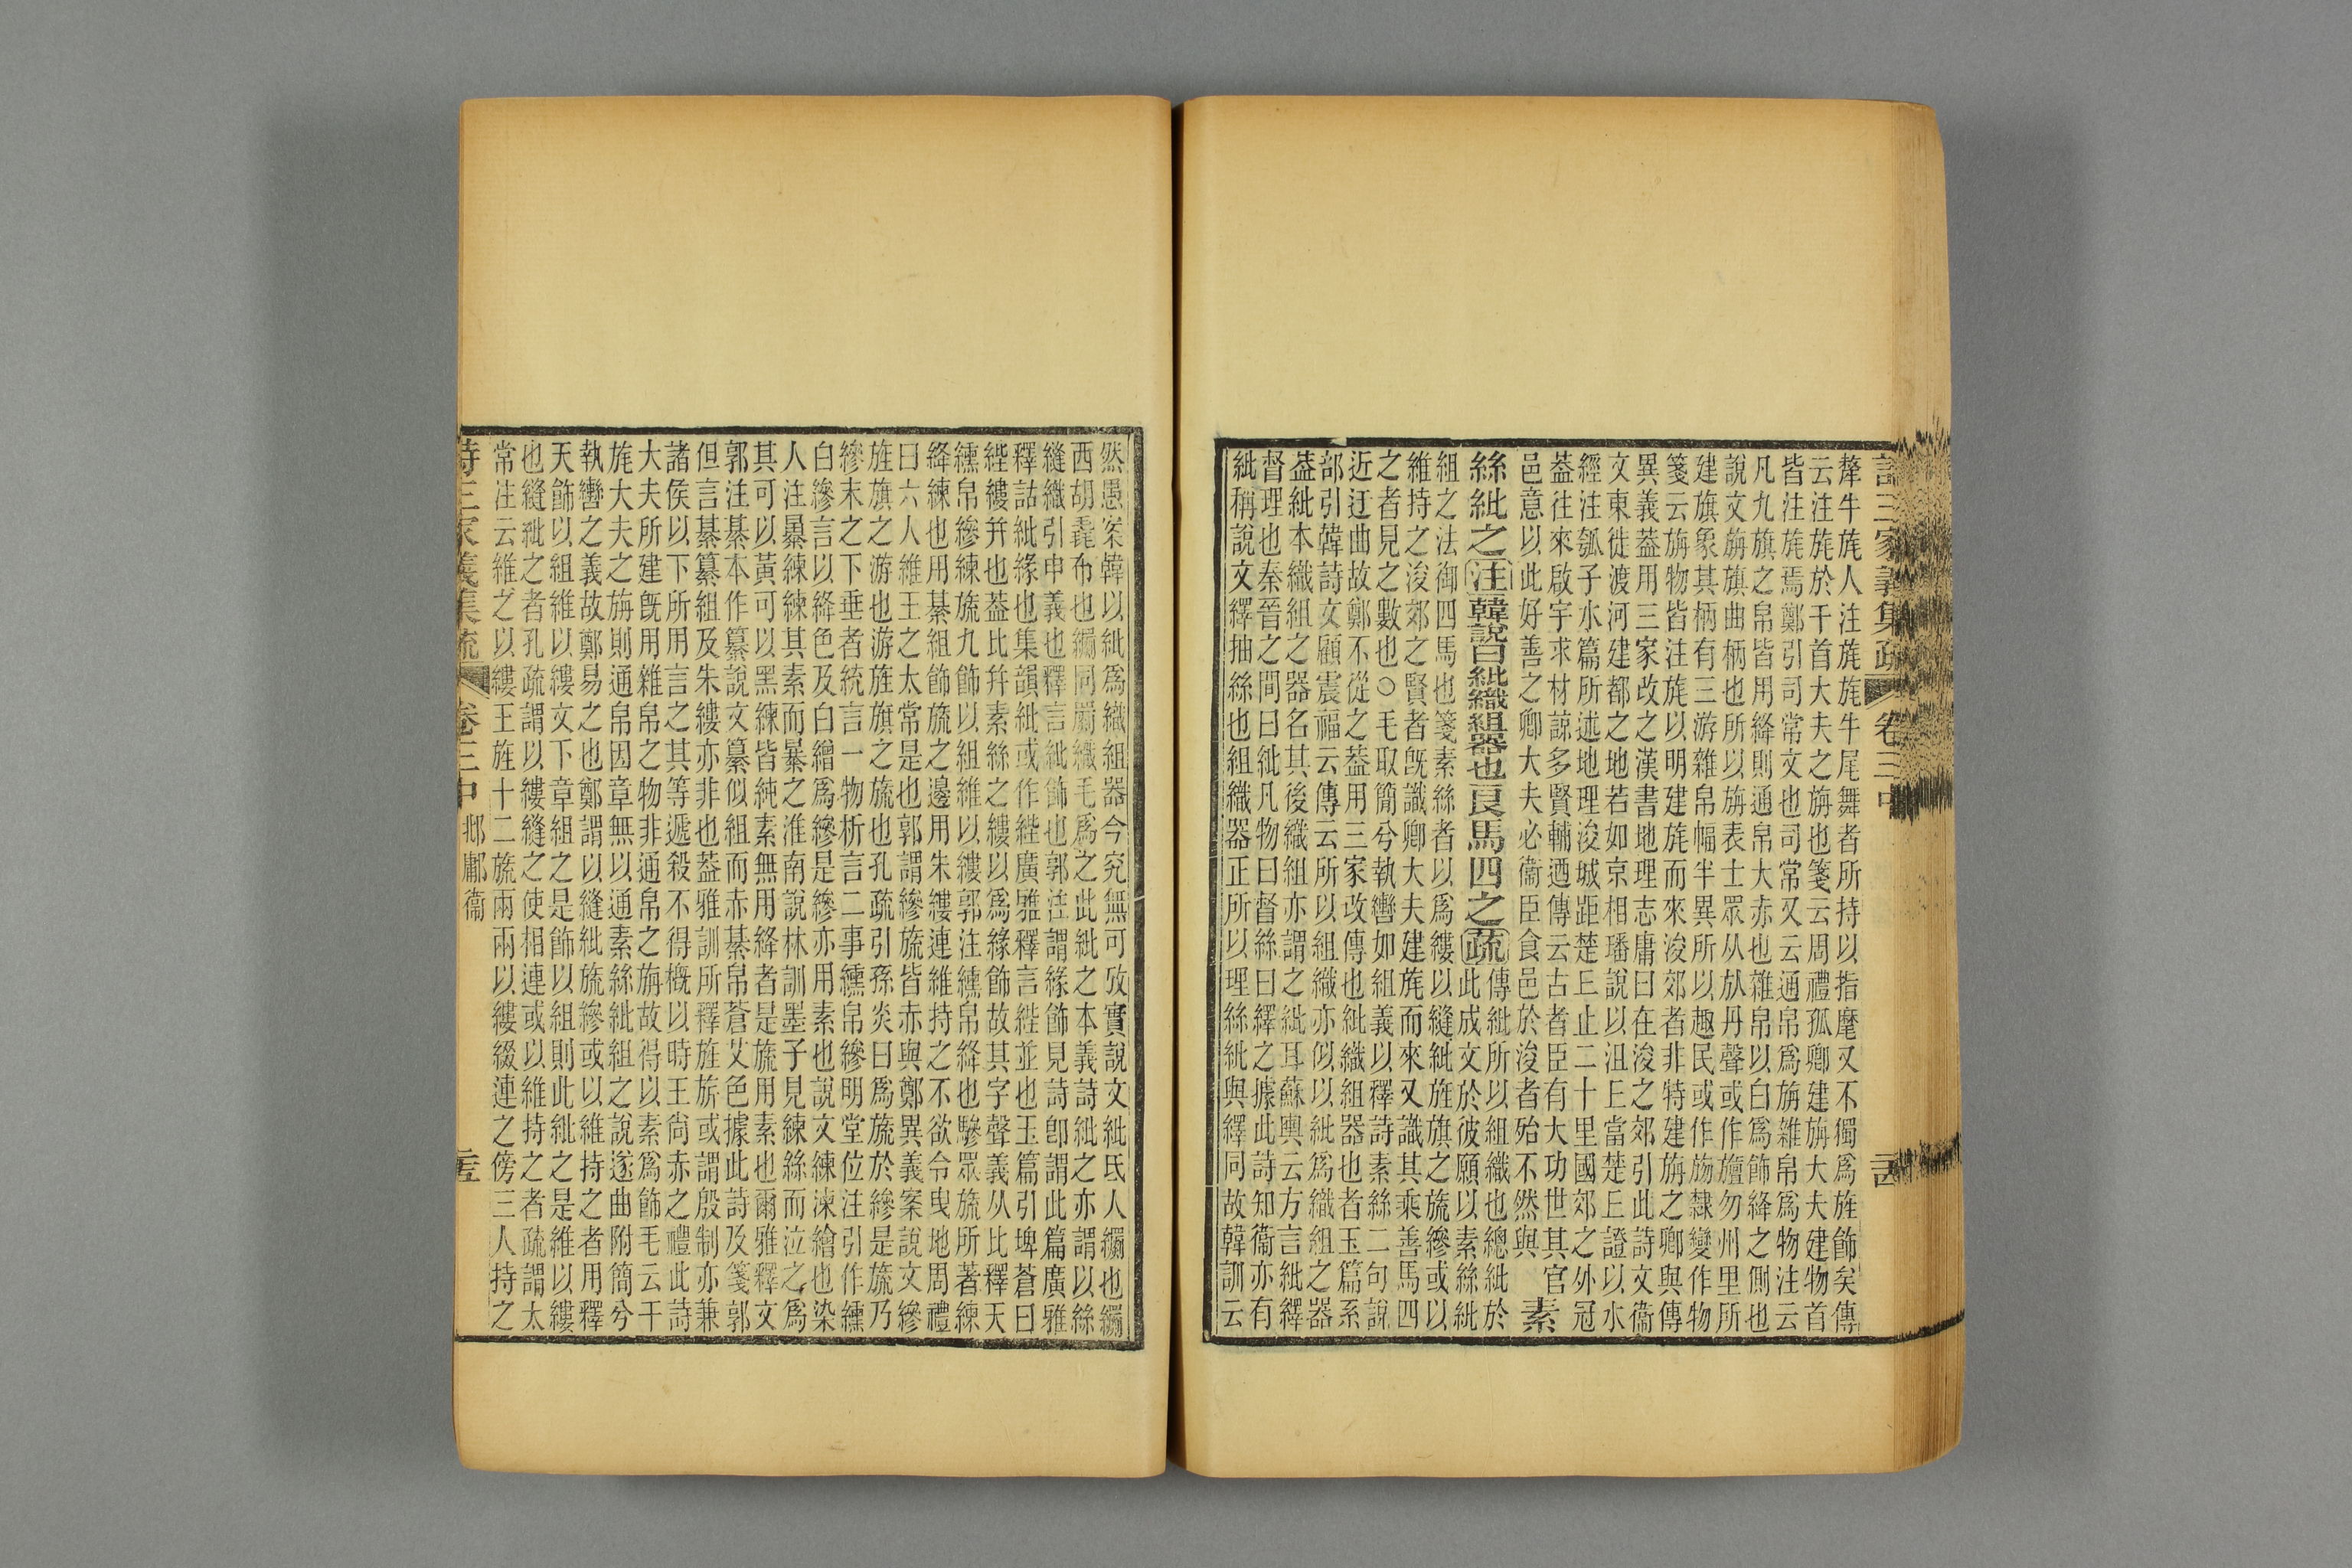 詩三家義集疏 卷三中 二四
犛牛旄人注旄旄牛尾舞者所持以指麾又不獨爲旌飾矣傳
云注旄於干首大夫之旃也箋云周禮孤卿建旃大夫建物首
皆注旄焉鄭引司常文也司常又云通帛爲旃雜帛爲物注云
凡九旗之帛皆用絳則通帛大赤也雜帛以白爲飾絳之側也
說文旃旗曲柄也所以旃表士眾从㫃丹聲或作旜勿州里所
建旗象其柄有三游雜帛幅半異所以趣民或作㫚隸變作物
箋云旃物皆注旄以明建旄而來浚郊者非特建旃之卿與傳
異義葢用三家改之漢書地理志庸曰在浚之郊引此詩文衞
文東徙渡河建都之地若如京相璠說以沮丘當楚丘證以水
經注瓠子水篇所述地理浚城距楚丘止二十里國郊之外冠
葢往來啟宇求材諒多賢輔迺傳云古者臣有大功世其官
邑意以此好善之卿大夫必衞臣食邑於浚者殆不然與 素
絲紕之注韓說曰紕織組器也良馬四之疏傳紕所以組織也總紕於
此成文於彼願以素絲紕
組之法御四馬也箋素絲者以爲縷以縫紕旌旗之旒縿或以
維持之浚郊之賢者旣識卿大夫建旄而來又識其乘善馬四
之者見之數也○毛取簡兮執轡如組義以釋詩素絲二句說
近迂曲故鄭不從之葢用三家改傳也紕織組器也者玉篇系
部引韓詩文顧震福云傳云所以組織亦似以紕爲織組之器
葢紕本織組之器名其後織組亦謂之紕耳蘇輿云方言紕繹
督理也秦晉之間曰紕凡物曰督絲曰繹之據此詩知衞亦有
紕稱說文繹抽絲也組織器正所以理絲紕與繹同故韓訓云
然愚案韓以紕爲織組器今究無可攷實說文紕氐人繝也繝
西胡毳布也繝同罽織毛爲之此紕之本義詩紕之亦謂以絲
縫織引申義也釋言紕飾也郭注謂緣飾見詩卽謂此篇廣雅
釋詁紕緣也集韻紕或作䊧廣雅釋言䊧並也玉篇引埤蒼曰
䊧縷幷也葢比幷素絲之縷以爲緣飾故其字聲義从比釋天
纁帛縿練旒九飾以組維以縷郭注纁帛絳也縿眾旒所著練
絳練也用綦組飾旒之邊用朱縷連維持之不欲令曳地周禮
曰六人維王之太常是也郭謂縿旒皆赤與鄭異義案說文縿
旌旗之游也游旌旗之旒也孔疏引孫炎曰爲旒於縿是旒乃
縿末之下垂者統言一物析言二事纁帛縿明堂位注引作纁
白縿言以絳色及白繒爲縿是縿亦用素也說文練湅繒也染
人注暴練練其素而暴之淮南說林訓墨子見練絲而泣之爲
其可以黃可以黑練皆純素無用絳者是旒用素也爾雅釋文
郭注綦本作纂說文纂似組而赤綦帛蒼艾色據此詩及箋郭
但言綦纂組及朱縷亦非也葢雅訓所釋旌旂或謂殷制亦兼
諸侯以下所用言之其等遞殺不得槪以時王尙赤之禮此詩
大夫所建旣用雜帛之物非通帛之旃故得以素爲飾毛云干
旄大夫之旃則通帛因章無以通素絲紕組之說遂曲附簡兮
執轡之義故鄭易之也鄭謂以縫紕旒縿或以維持之者用釋
天飾以組維以縷文下章組之是飾以組則此紕之是維以縷
也縫紕之者孔疏謂以縷縫之使相連或以維持之者疏謂太
常注云維之以縷王旌十二旒兩兩以縷綴連之傍三人持之
詩三家義集疏 卷三中 邶鄘衞 二五